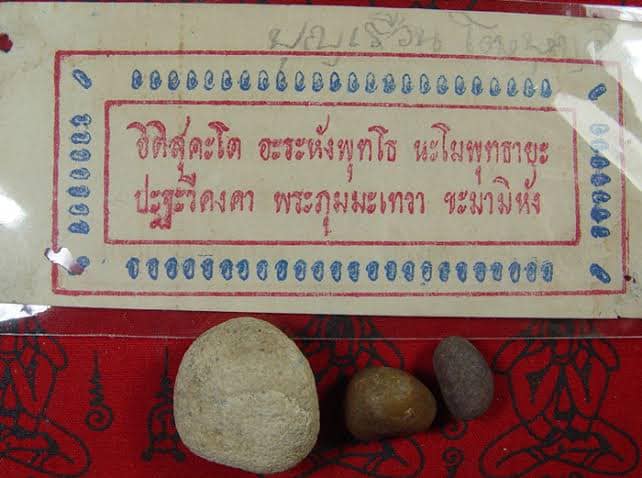 บุญเรือน โตงบุญ
อิติสุคะโต อะระหังพุทโธ นะโมพุทธายะ
ปะฐะวีคงคา พระภุมมะเทวา ขะมามิหัง